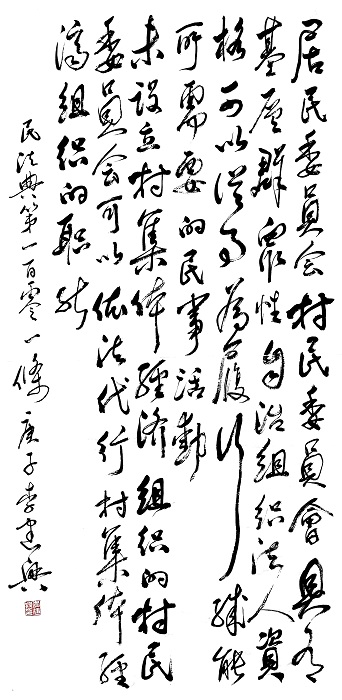 居民委員会村民委員會具有
基层群眾性自治組织法人資
格可以從事為履行職能
所需要的民事活動
未设立村集体經济組织的村民
委員会可以依法代行村集体經
濟組织的職能
民法典第一百零一條 庚子李建興